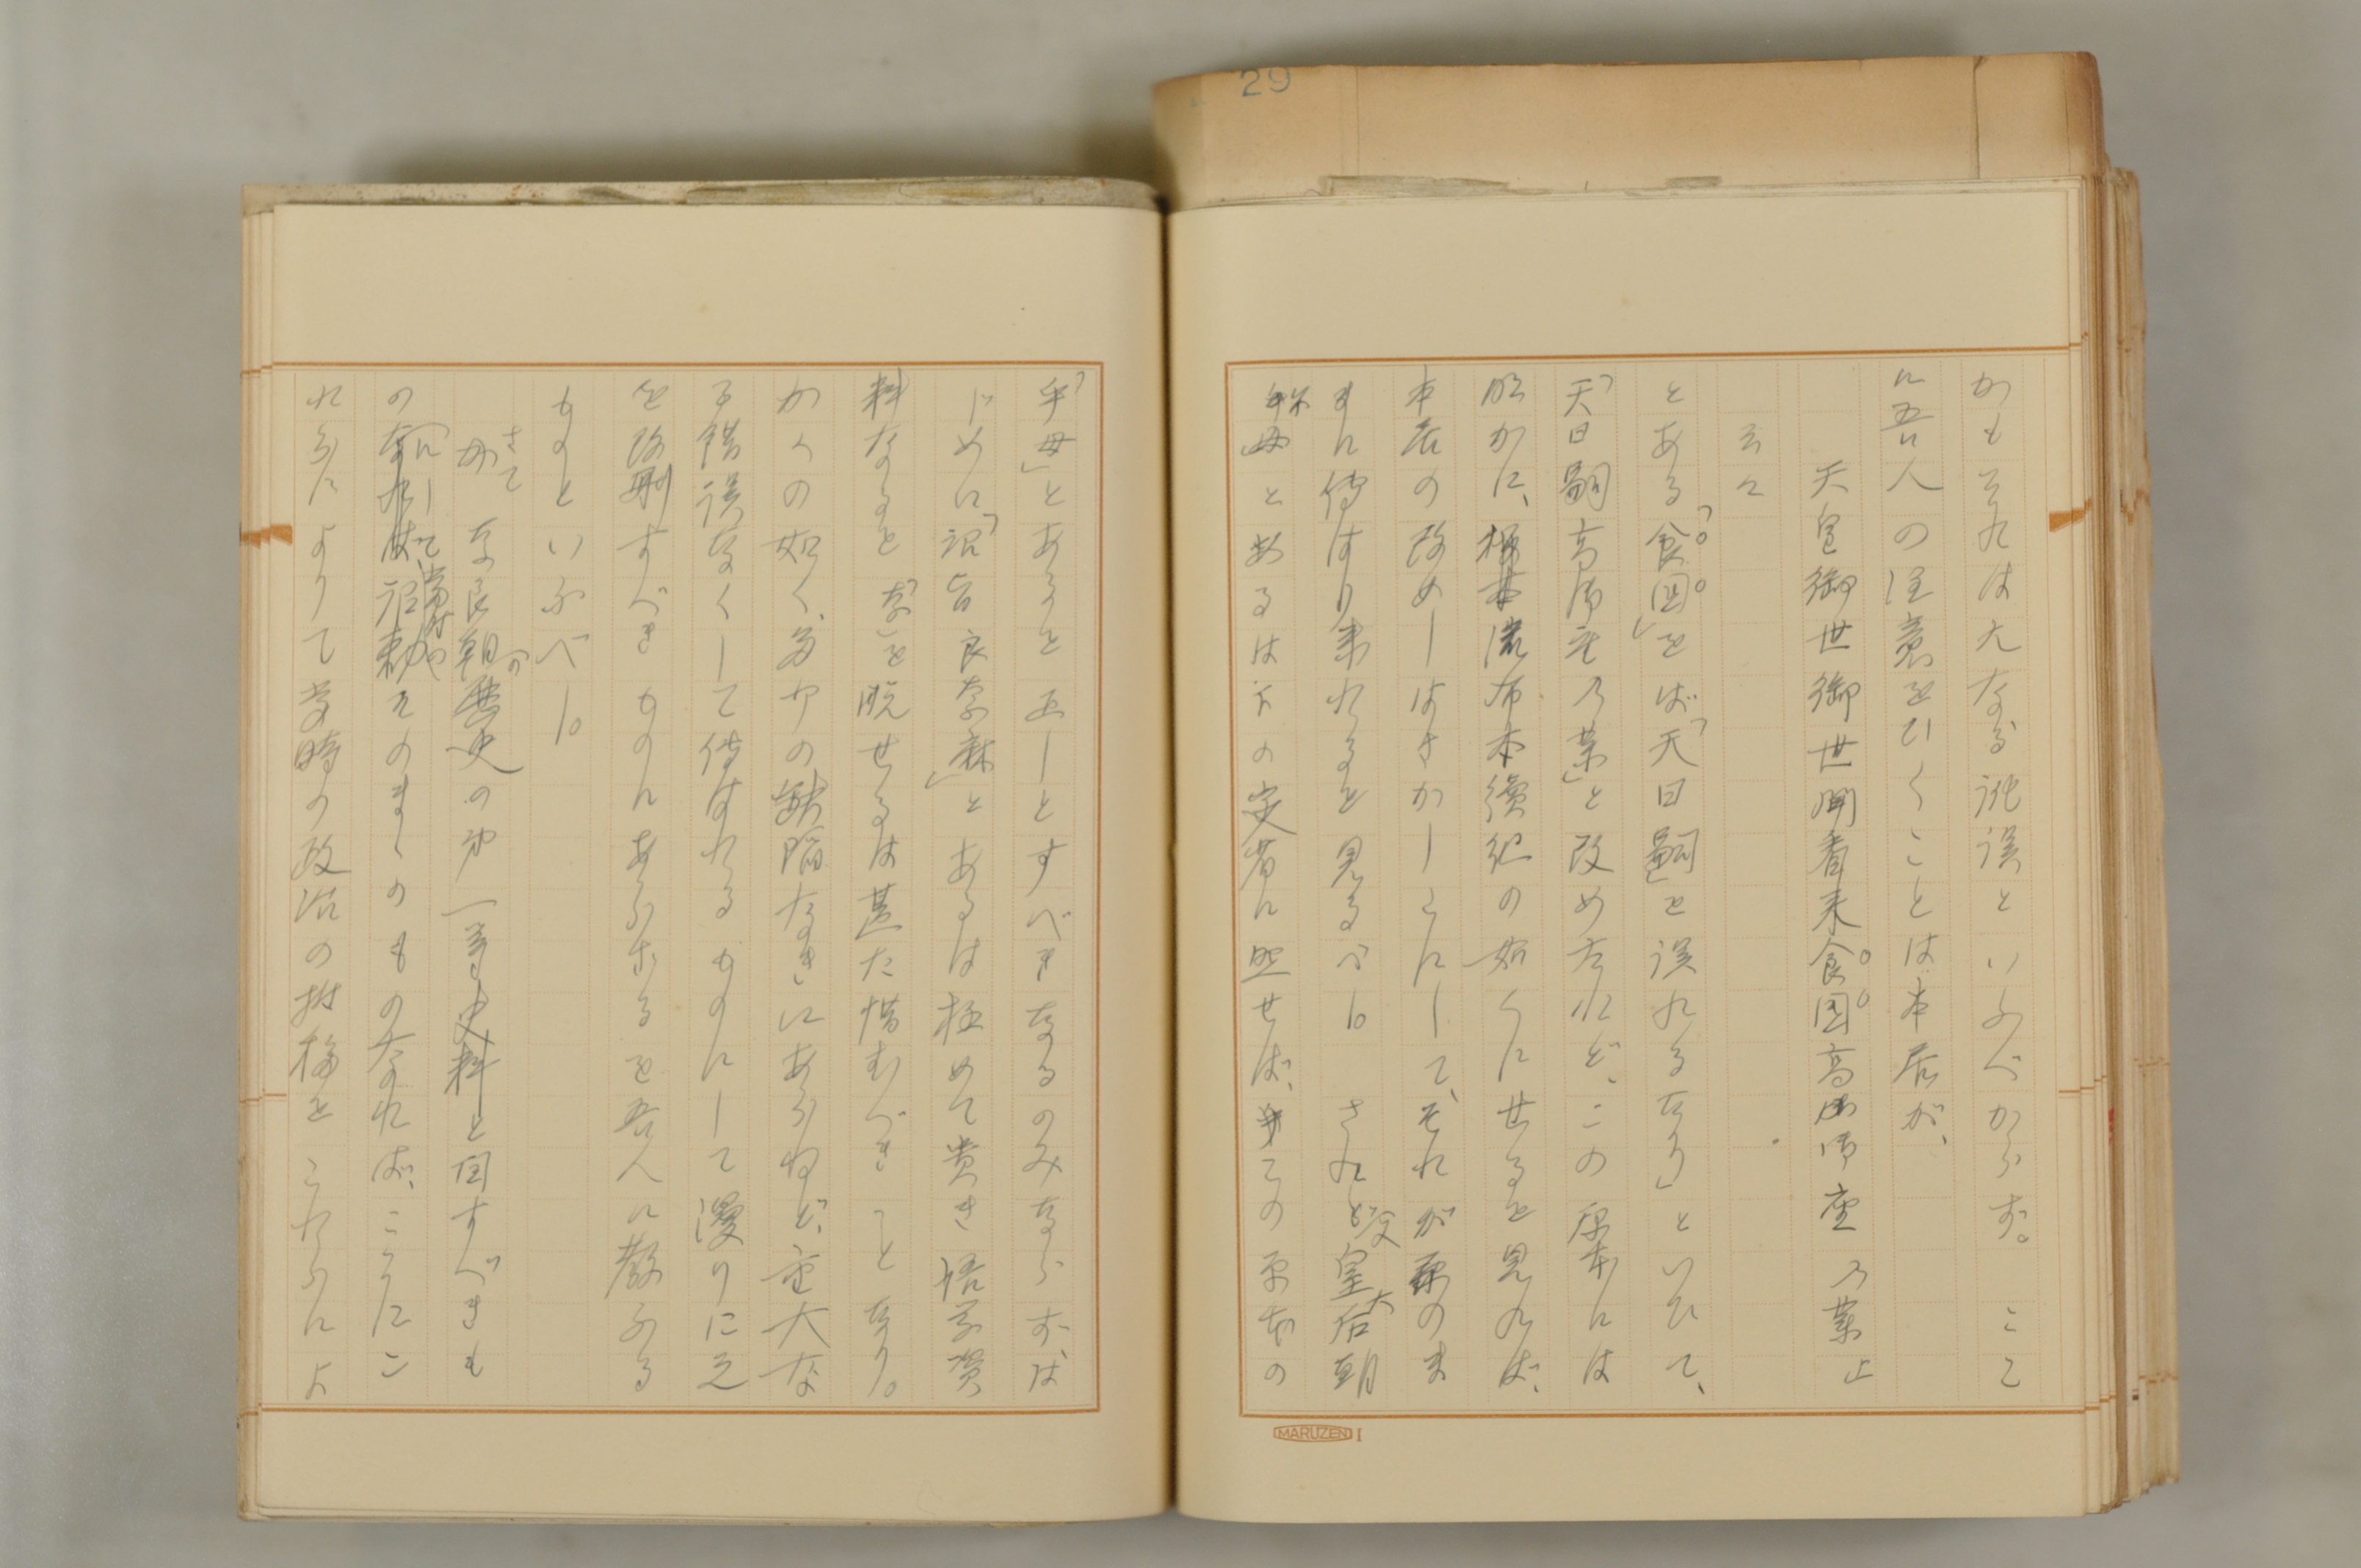 29
かも それは大なる訛誤といふべからず。こゝ
に吾人の注意をひくことは本居が、
天皇御世御世聞看来食国高御座乃業止
云々
とある「食国」をば「天日嗣」を誤れるなり」といひて、
「天日嗣高御座乃業」と改めたれど、この原本には
明かに、流布本續紀の如くに せるを見れば、
本居の改めしはさかしらにして、それが のま
まに傳はり来れるを見るべし。されど 皇大后朝
とあるは の 者に照せば、 この原本の
「乎母」とあるを正しとすべきなるのみならず、は
じめに「詔旨良奈麻」とあるは極めて貴き語学資
料なるを「奈」を脱せるは甚だ惜むべきことなり。
かくの如く、多少の缺陥なきにあらねど、重大な
る錯誤なくして傳はれるものにして漫りに之
を改刪すべきものにあらざるを吾人に教ふる
ものといふべし。
さて 奈良朝の歴史の 一等史料と目すべきも
のにして、当時の詔勅そのまゝのものなれば、こゝに
れらによりて当時の政治の推移を これらによ
MARUZEN I